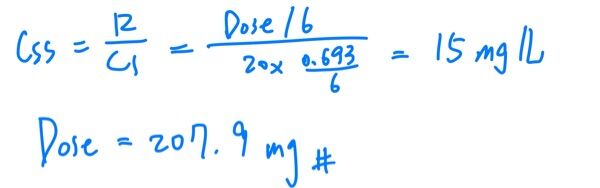 Css = R/Cl = (Dose/6)/(20 x 0.693/6) = 15 mg/L
Dose = 207.9 mg #